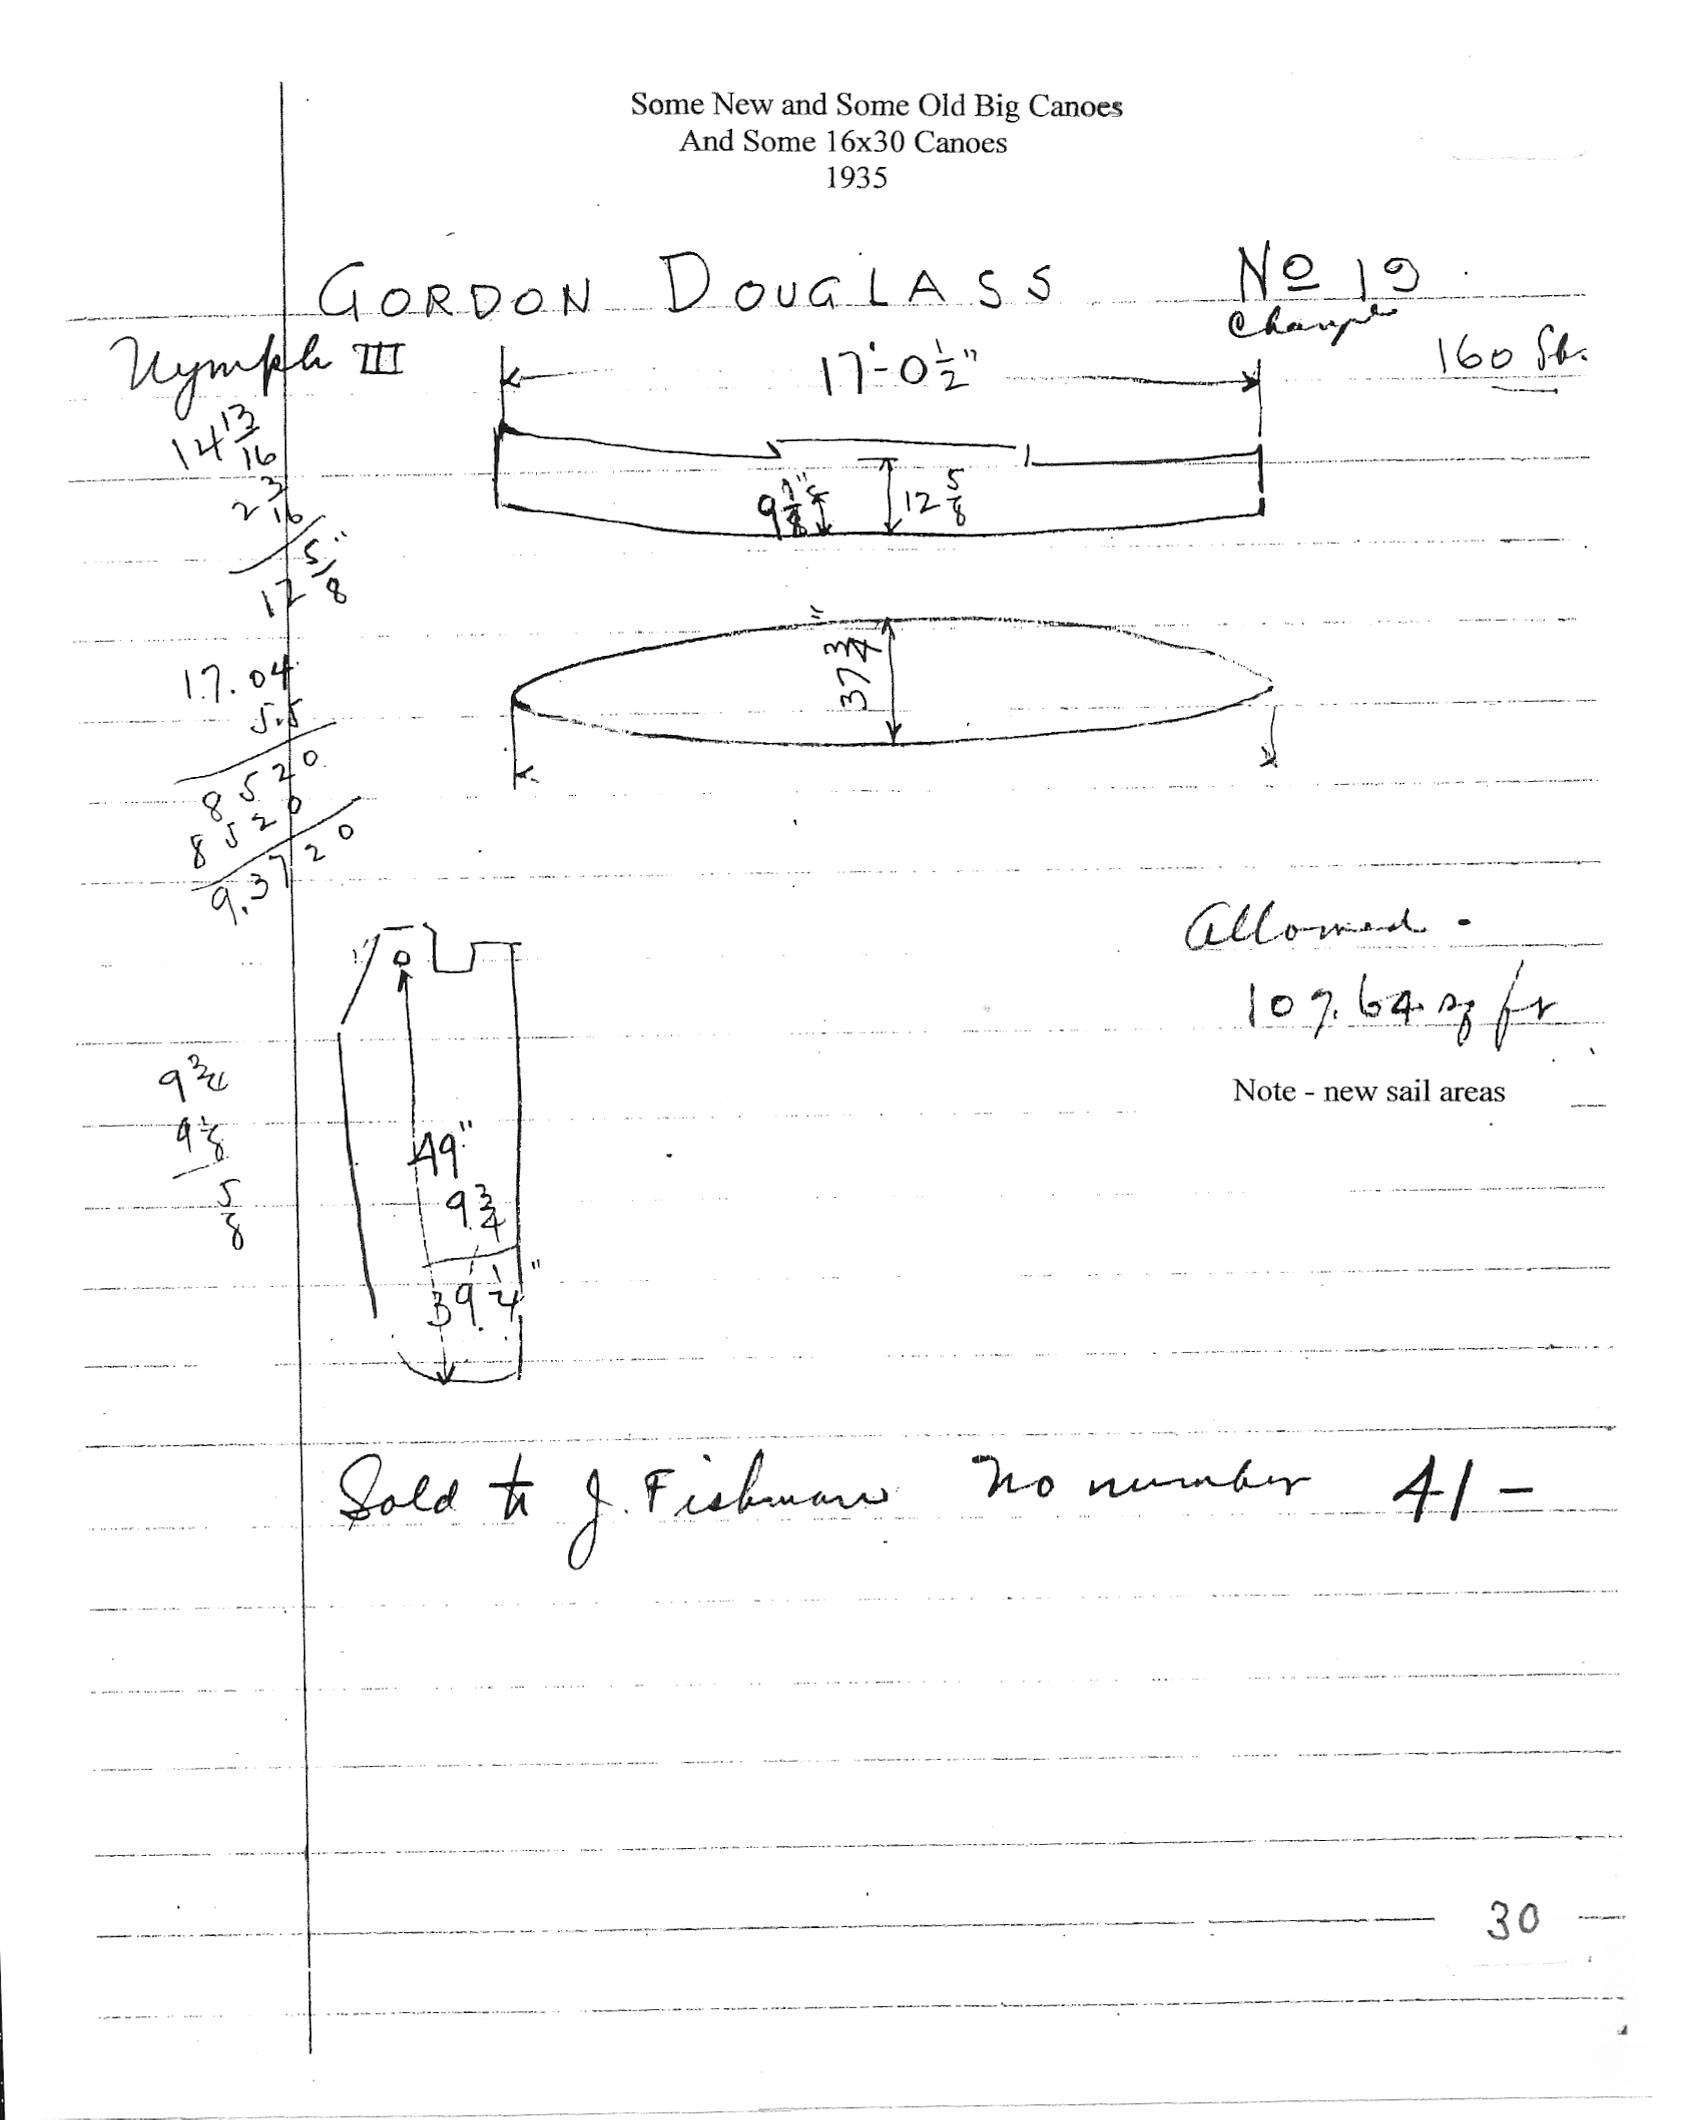 Some New and Some Old Big Canoes
And Some 16x30 Canoes
1935
GORDON DOUGLASS No 19
Nymph III
17'-0 1/2"
160 lb.
14 13/16
2 3/16
12 5/8"
9 7/8"
12 5/8
37 3/4"
17.04
5.5
8520
8520
9.3720
Allowed -
107.64 sq ft
Note - new sail areas
9 3/4
9 1/8
5/8
49"
9 3/4
39 1/4"
Sold to J. Fishman No number 41-
30